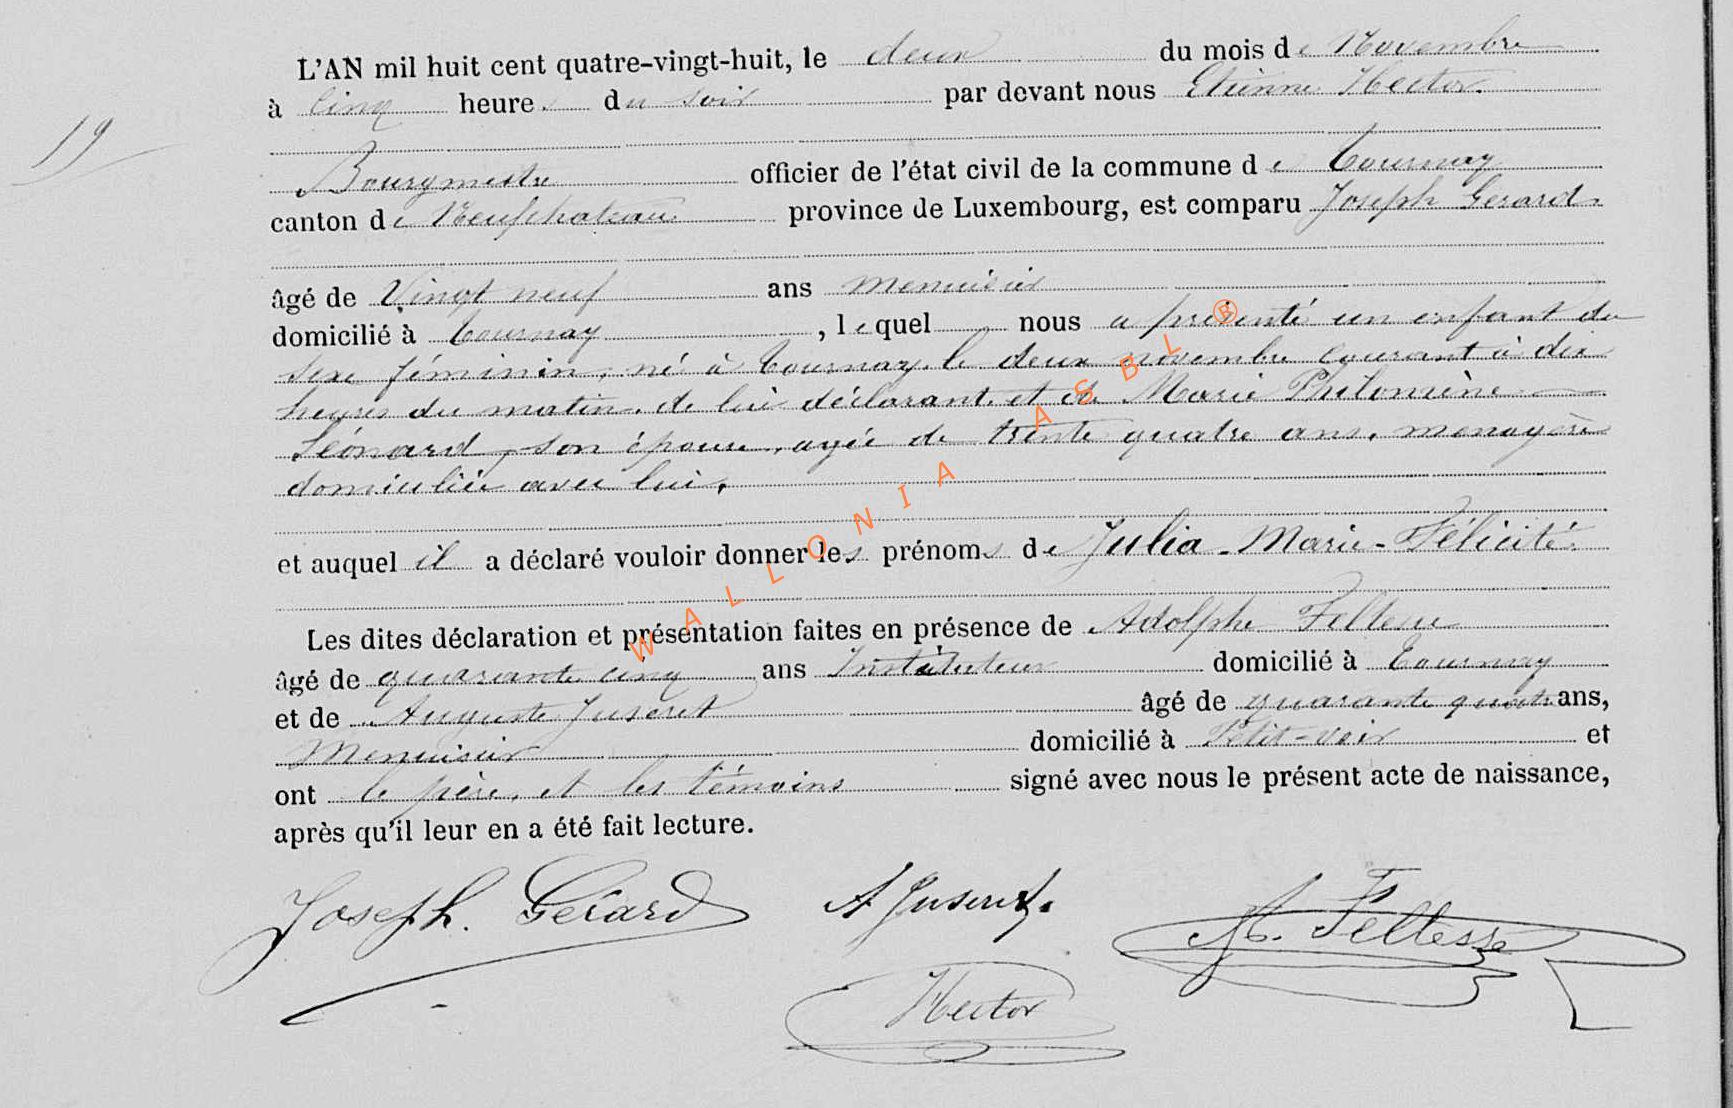 L'AN mil huit cent quatre-vingt-huit, le deux du mois de Novembre
à cinq heures du soir par devant nous Etienne Hector.
19
Bourgmestre officier de l'état civil de la commune de Tournay
canton de Neufchateau province de Luxembourg, est comparu Joseph Gerard.
âgé de Vingt neuf ans menuisier
domicilié à Tournay, lequel nous a présenté un enfant du
sexe féminin, né à Tournay, le deux novembre courant à dix
heures du matin. de lui déclarant et de Marie Philomène
Léonard, son épouse, agée de trente quatre ans, menagère
domiciliée avec lui,
et auquel il a déclaré vouloir donner les prénoms de Julia-Marie-Félicité.
Les dites déclaration et présentation faites en présence de Adolphe Feltesse
âgé de quarante cinq ans Instituteur domicilié à Tournay
et de Auguste Juseret âgé de quarante quatre ans,
Menuisier domicilié à Petit-voir et
ont le père, et les témoins signé avec nous le présent acte de naissance,
après qu'il leur en a été fait lecture.
Joseph. Gérard A Juseret. A. Feltesse
Hector
WALLONIA ASBL ®